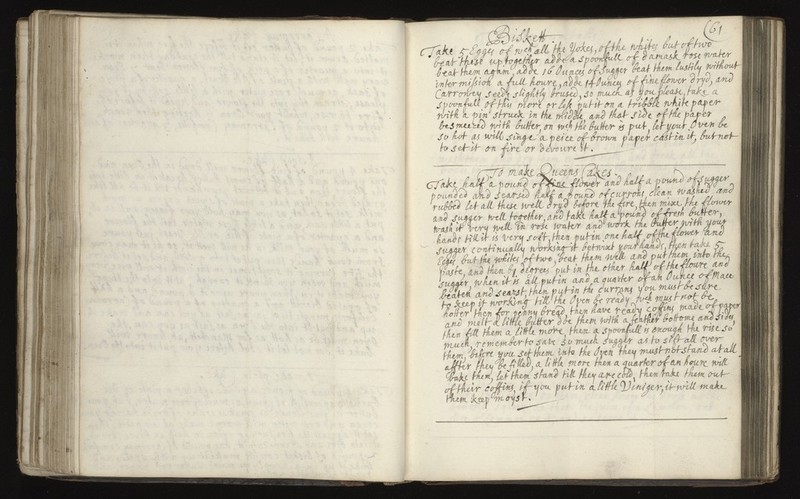 61
Biskett
Take 5 Egges of wch all the Yokes, of the whites but of two
beat these up together adde a spoonfull of damask rose water
beat them again, adde 16 Ounces of Sugger beat them lustily without
intermission a full houre, adde 14 ounces of fine flower dryd, and
Carroway seeds slightly brused, so much as you please, take a
spoonfull of this more or less put it on a tribble white paper
with a pin struck in the middle and that side of the paper
besmeered with butter, on wch the butter is put, let your Oven be
so hot as will singe a peice of brown paper cast in it, but not
to set it on fire or devoure it.
To make Queens Cakes.
Take half a pound of fine flower and half a pound of sugger
pounded and searsed half a pound of currons clean washed and
rubbed let all these well dryd before the fire, then mixe the flower
and sugger well together, and take half a pound of fresh butter,
wash it very well in rose water and work the butter with your
hands till it is very soft, then put in one half of the flower and
sugger continually working it betwixt your hands, then take 5
Egges but the whites of two, beat them well and put them into the
paste, and then by degrees put in the other half of the floure and
sugger, when it is all put in and a quarter of an Ounce of Mace
beaten and searst, then put in the currans you must be sure
to keep it working till the Oven be ready, wch must not be
hotter then for penny bread, then have ready coffins made of paper
and melt a little butter doe them with a feather bottoms and sides
then fill them a little more then a spoonfull is enough tha rise so
much, remember to save so much sugger as to sift all over
them, before you set them into the Oven they must not stand at all
after they be filled, a little more then a quarter of an houre will
bake them, let them stand till they are cold, then take them out
of their coffins, if you put in a little Viniger, it will make
them keep moyst.